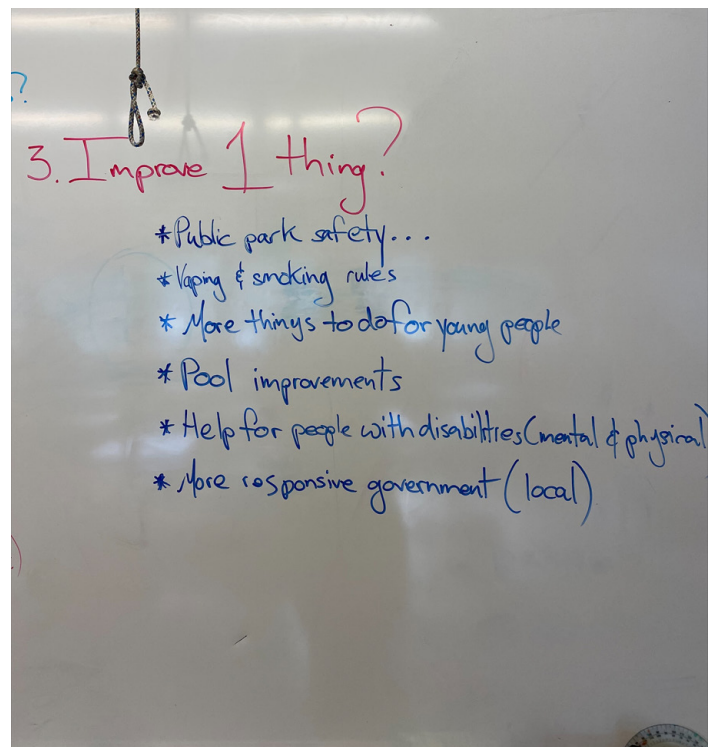 ?
3. Improve 1 thing?
* Public park safety...
* Vaping & smoking rules
* More things to do for young people
* Pool improvements
* Help for people with disabilities (mental & physical)
* More responsive government (local)
)